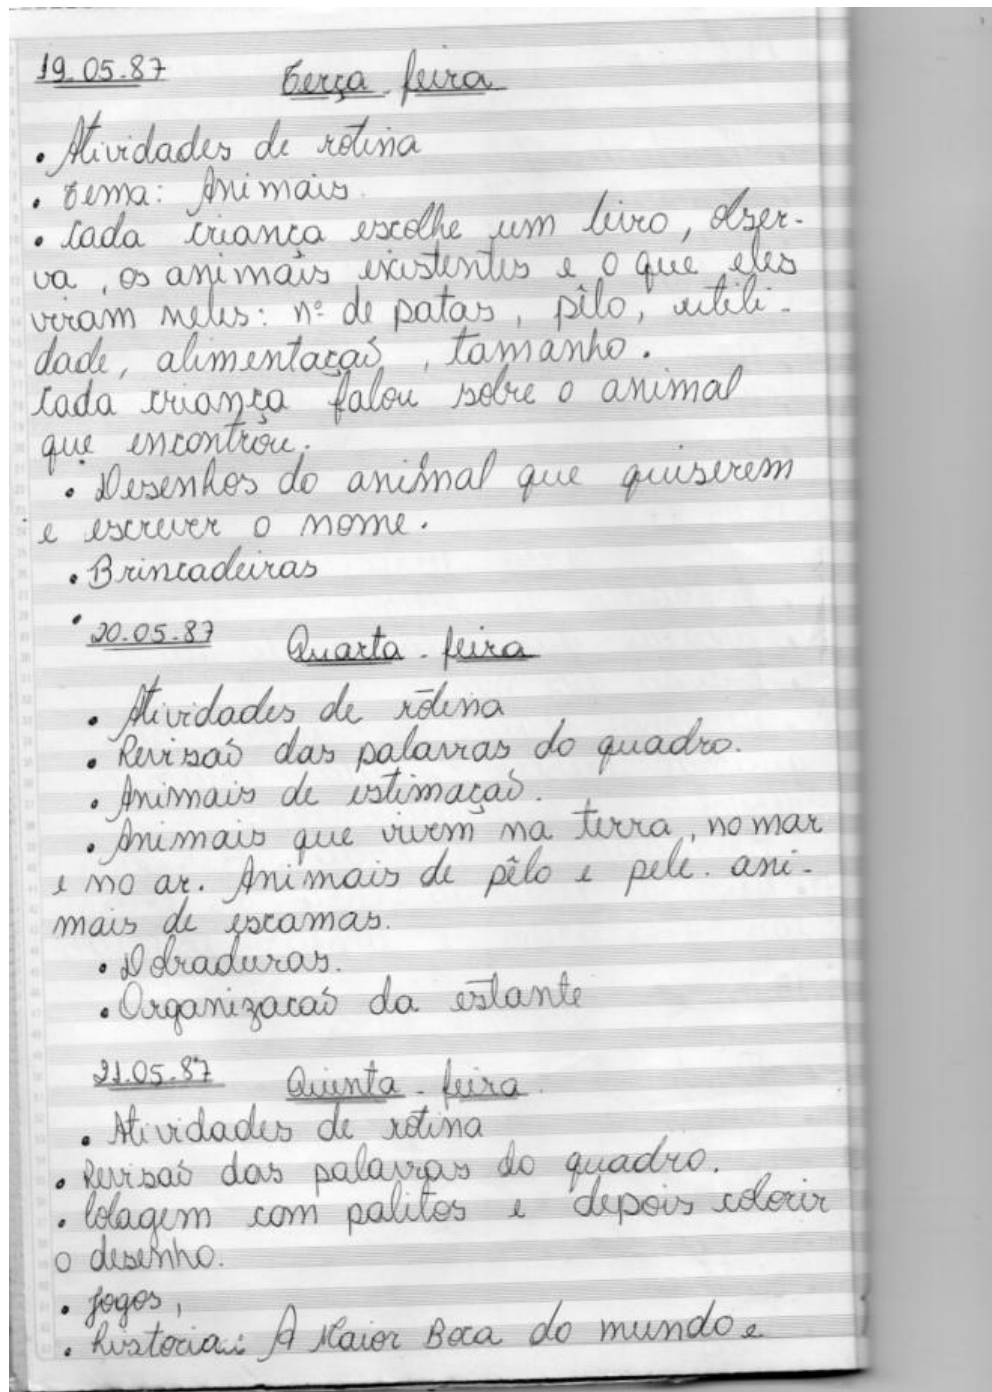 19.05.87 Terça-feira
• Atividades de rotina
• Tema: Animais.
• Cada criança escolhe um livro, obser-
va, os animais existentes e o que eles
viram neles: nº de patas, pêlo, utili-
dade, alimentaçaõ, tamanho.
Cada criança falou sobre o animal
que encontrou.
• Desenhos do animal que quiserem
e escrever o nome.
• Brincadeiras
•
20.05.87 Quarta-feira
• Atividades de rotina
• Revisaõ das palavras do quadro.
• Animais de estimaçaõ.
• Animais que vivem na terra, no mar
e no ar. Animais de pêlo e pele. ani-
mais de escamas.
• Dobraduras.
• Organizacaõ da estante
21.05.87 Quinta-feira.
• Atividades de rotina
• Revisaõ das palavras do quadro.
• Colagem com palitos e depois colorir
o desenho.
• Jogos,
• história: A Maior Boca do mundo e